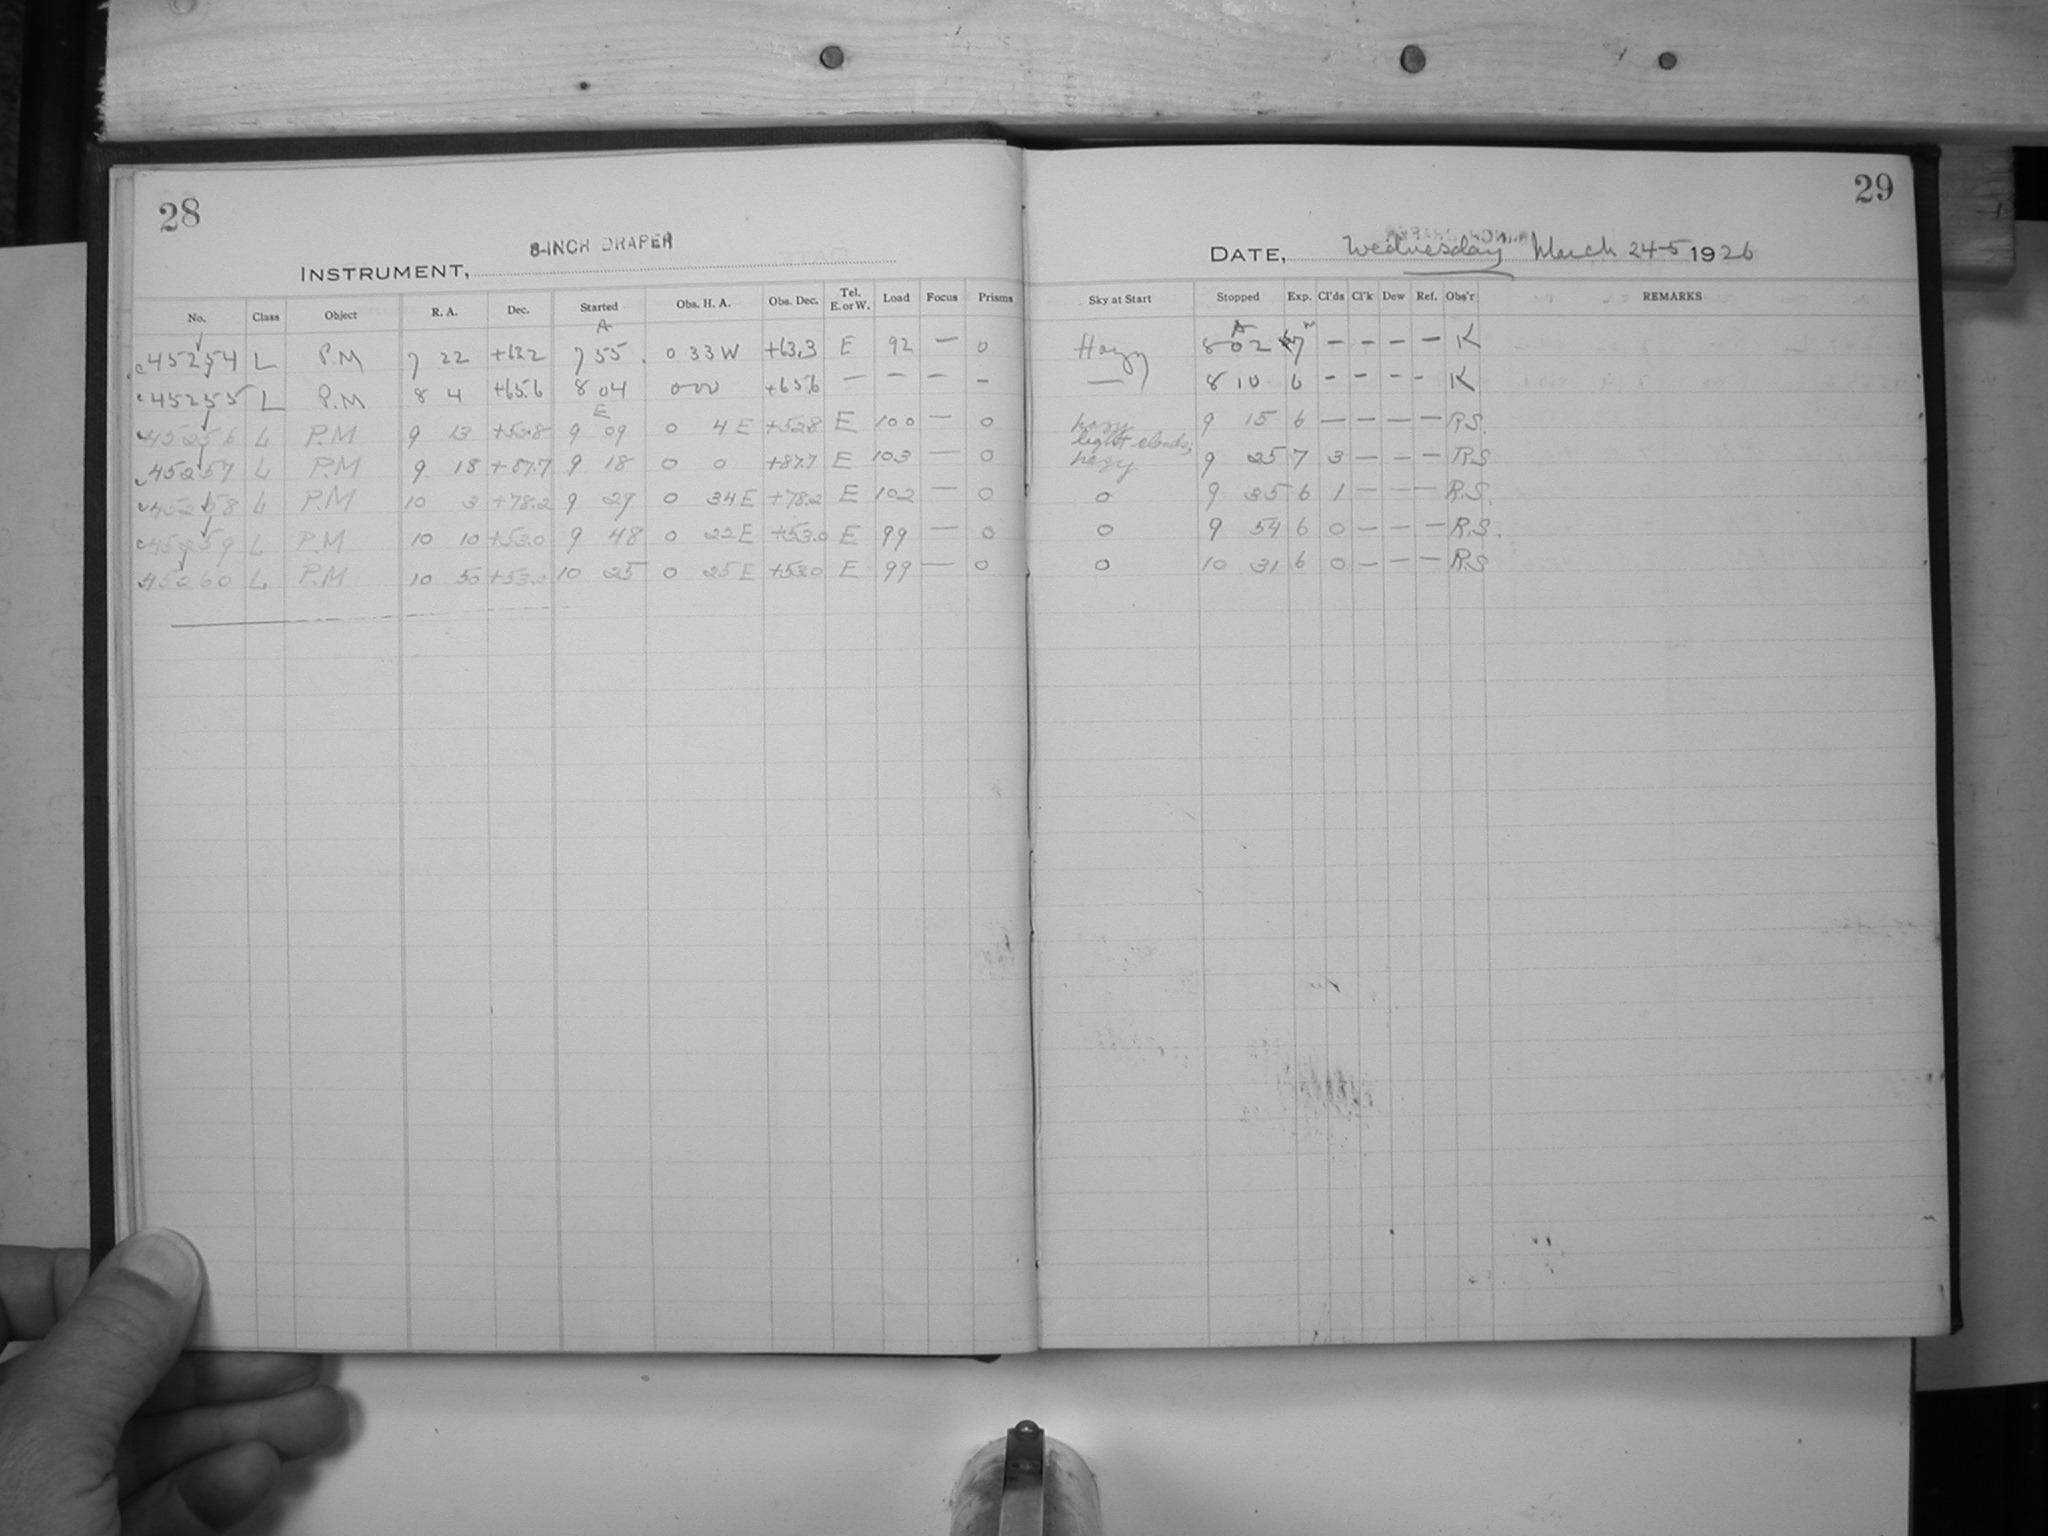 28
8-INCH DRAPER
INSTRUMENT,
No. Class Object R. A. Dec. Started Obs. H. A. Obs. Dec. Tel. E. or W. Load Focus Prisms
A
45254 L P.M 7 22 +63.2 7 55 0 33 W +63.3 E 92 — 0
45255 L P.M 8 4 +65.6 8 04 0 00 +65.6 — — — —
E
45256 L P.M 9 13 +52.8 9 09 0 4 E +52.8 E 100 — 0
45257 L P.M 9 18 +87.7 9 18 0 0 +87.7 E 103 — 0
45258 L P.M 10 3 +78.2 9 29 0 34 E +78.2 E 102 — 0
45259 L P.M 10 10 +53.0 9 48 0 22 E +53.0 E 99 — 0
45260 L P.M 10 50 +53.0 10 25 0 25 E +53.0 E 99 — 0
29
DATE, Wednesday March 24-5 1926
Sky at Start Stopped Exp. Cl'ds Cl'k Dew Ref. Obs'r REMARKS
A m
Hazy 8 02 7 — — — — K
— 8 10 6 — — — — K
hazy 9 15 6 — — — — R.S.
light clouds;
hazy 9 25 7 3 — — — R.S
0 9 35 6 1 — — — R.S.
0 9 54 6 0 — — — R.S.
0 10 31 6 0 — — — R.S